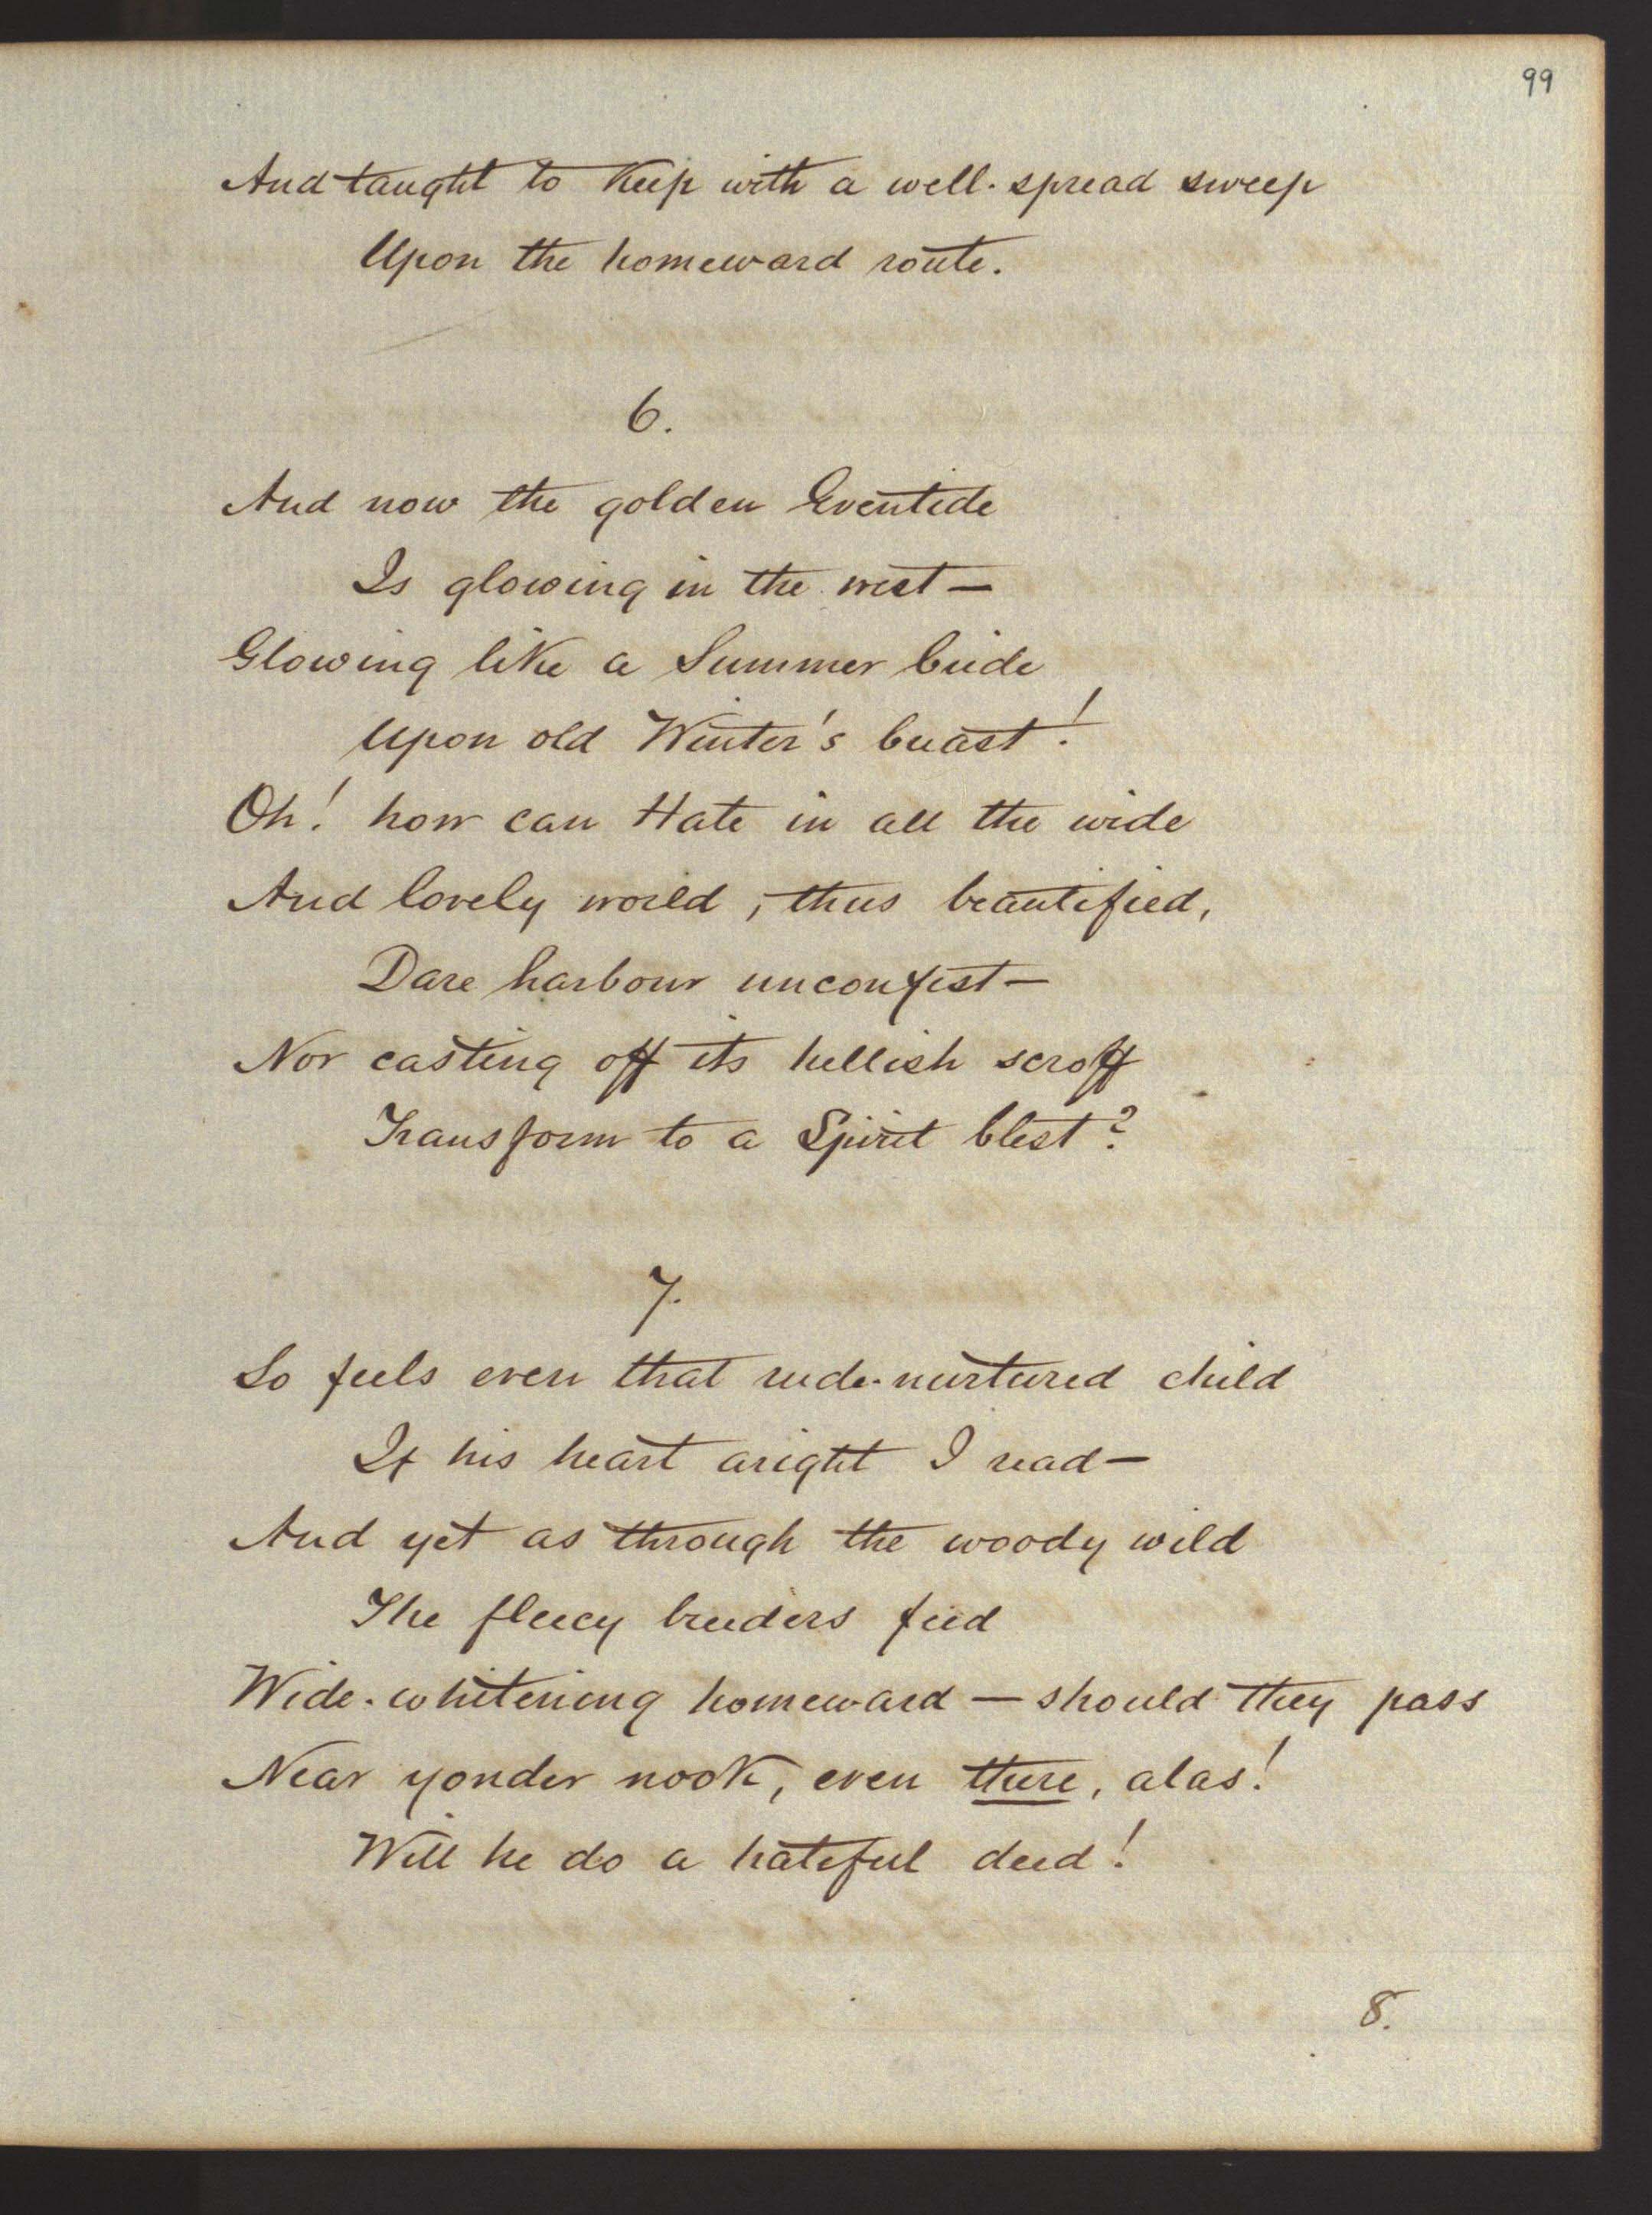 99
And taught to keep with a well-spread sweep
Upon the homeward route.
6.
And now the golden Eventide
Is glowing in the west —
Glowing like a Summer bride
Upon old Winter's breast!
Oh! how can Hate in all the wide
And lovely world, thus beautified,
Dare harbour unconfest —
Nor casting off its hellish scroff
Transform to a Spirit blest?
7.
So feels even that rude-nurtured child
If his heart aright I read —
And yet as through the woody wild
The fleecy breeders feed
Wide-whitening homeward — should they pass
Near yonder nook, even there, alas!
Will he do a hateful deed!
8.